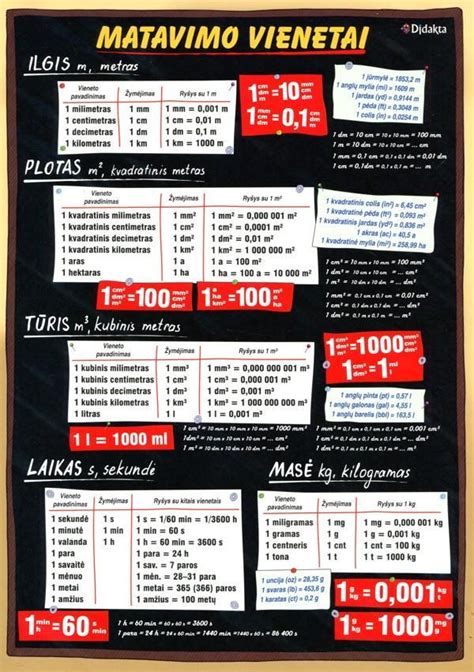 Didakta
MATAVIMO VIENETAI
ILGIS m, metras
Vieneto pavadinimas Žymėjimas Ryšys su 1 m
1 milimetras 1 mm 1 mm = 0,001 m
1 centimetras 1 cm 1 cm = 0,01 m
1 decimetras 1 dm 1 dm = 0,1 m
1 kilometras 1 km 1 km = 1000 m
1 cm dm = 10 mm cm
1 mm cm = 0,1 cm dm
1 jūrmylė = 1853,2 m
1 anglų mylia (ml) = 1609 m
1 jardas (yd) = 0,9144 m
1 pėda (ft) = 0,3048 m
1 colis (in) = 0,0254 m
1 dm = 10 cm = 10 x 10 mm = 100 mm
1 m = 10 dm = ... cm
1 mm = 0,1 cm = 0,1 x 0,1 dm = 0,01 dm
1 cm = 0,1 dm = ... m
PLOTAS m², kvadratinis metras
Vieneto pavadinimas Žymėjimas Ryšys su 1 m²
1 kvadratinis milimetras 1 mm² 1 mm² = 0,000 001 m²
1 kvadratinis centimetras 1 cm² 1 cm² = 0,0001 m²
1 kvadratinis decimetras 1 dm² 1 dm² = 0,01 m²
1 kvadratinis kilometras 1 km² 1 km² = 1 000 000 m²
1 aras 1 a 1 a = 100 m²
1 hektaras 1 ha 1 ha = 100 a = 10 000 m²
1 kvadratinis colis (in²) = 6,45 cm²
1 kvadratinė pėda (ft²) = 0,093 m²
1 kvadratinis jardas (yd²) = 0,836 m²
1 akras (ac) = 40,5 a
1 kvadratinė mylia (mi²) = 258,99 ha
1 cm² dm² = 100 mm² cm²
1 a ha = 100 m² a
TŪRIS m³, kubinis metras
Vieneto pavadinimas Žymėjimas Ryšys su 1 m³
1 kubinis milimetras 1 mm³ 1 mm³ = 0,000 000 001 m³
1 kubinis centimetras 1 cm³ 1 cm³ = 0,000 001 m³
1 kubinis decimetras 1 dm³ 1 dm³ = 0,001 m³
1 kubinis kilometras 1 km³ 1 km³ = 1 000 000 000 m³
1 litras 1 l 1 l = 0,001 m³
1 l = 1000 ml
1 cm³ dm³ = 1000 mm³ cm³
1 cm³ dm³ = 1 ml l
1 anglų pinta (pt) = 0,57 l
1 anglų galonas (gal) = 4,55 l
1 anglų barelis (bbl) = 163,5 l
LAIKAS s, sekundė
Vieneto pavadinimas Žymėjimas Ryšys su kitais vienetais
1 sekundė 1 s 1 s = 1/60 min = 1/3600 h
1 minutė 1 min 1 min = 60 s
1 valanda 1 h 1 h = 60 min = 3600 s
1 para 1 para = 24 h
1 savaitė 1 sav. = 7 paros
1 mėnuo
1 metai 1 metai = 365 (366) paros
1 amžius 1 amžius = 100 metų
1 min h = 60 s min
1 h = 60 min = 60 x 60 s = 3600 s
1 para = 24 h = 24 x 60 min = 1440 min = 1440 x 60 s = 86 400 s
MASĖ kg, kilogramas
Vieneto pavadinimas Žymėjimas Ryšys su 1 kg
1 miligramas 1 mg 1 mg = 0,000 001 kg
1 gramas 1 g 1 g = 0,001 kg
1 centneris 1 cnt 1 cnt = 100 kg
1 tona 1 t 1 t = 1000 kg
1 uncija (oz) = 28,35 g
1 svaras (lb) = 453,6 g
1 karatas (ct) = 0,2 g
1 g kg = 0,001 kg t
1 g kg = 1000 mg g